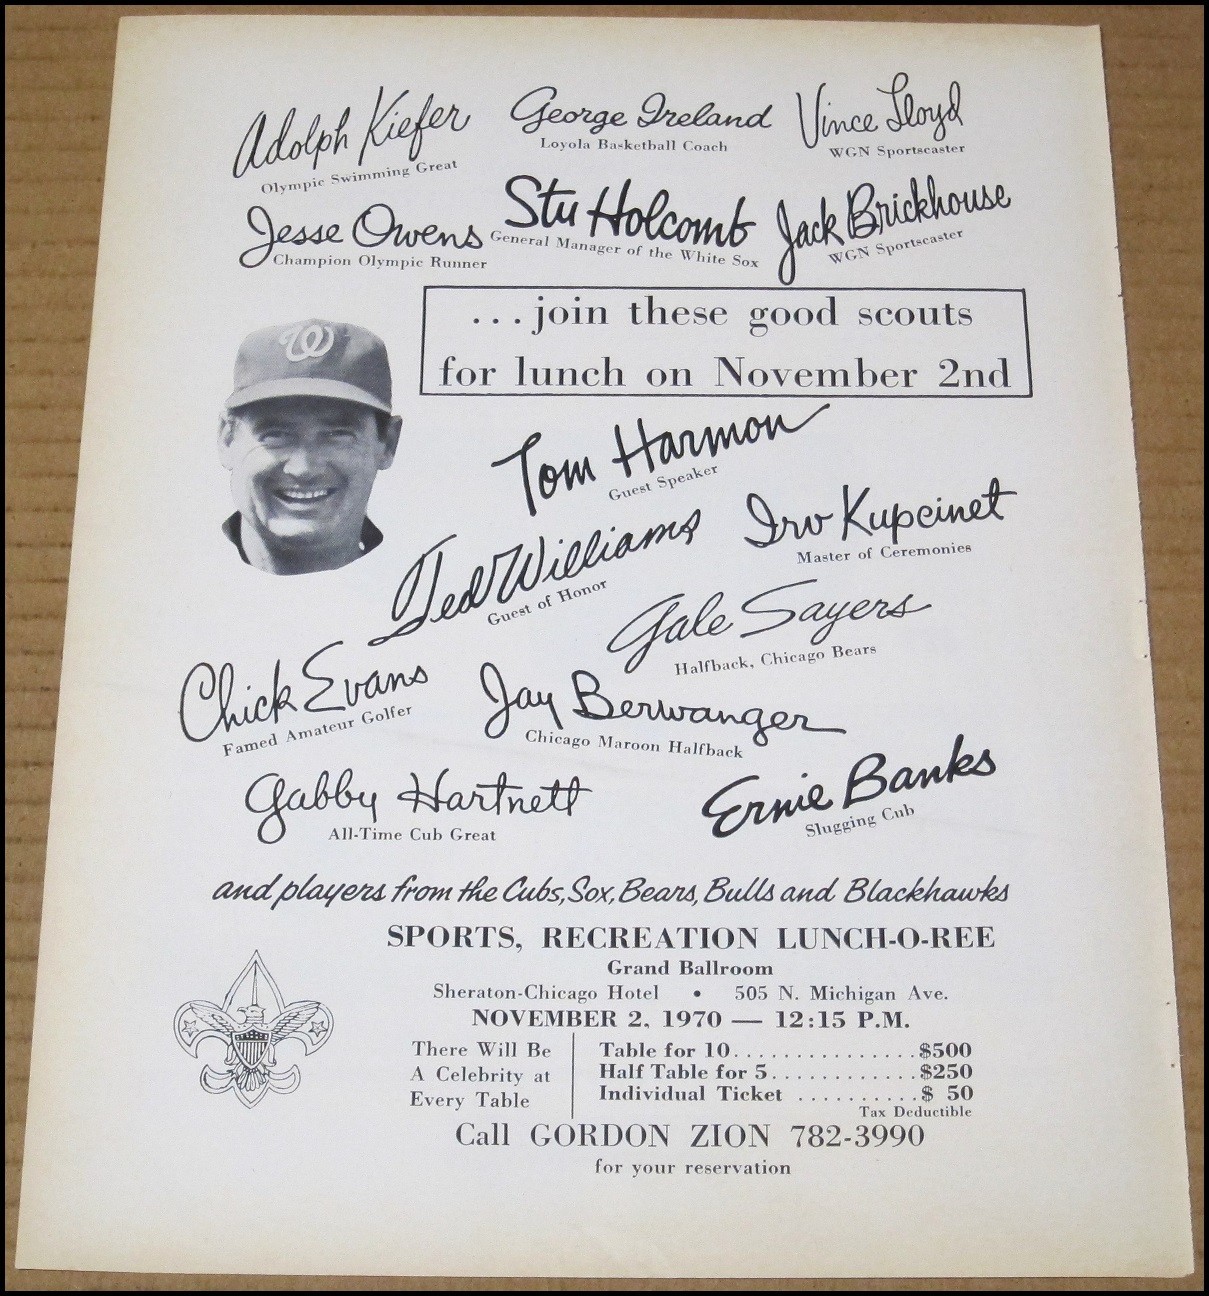 Adolph Kiefer
Olympic Swimming Great
George Ireland
Loyola Basketball Coach
Vince Lloyd
WGN Sportscaster
Jesse Owens
Champion Olympic Runner
Stu Holcomb
General Manager of the White Sox
Jack Brickhouse
WGN Sportscaster
...join these good scouts
for lunch on November 2nd
W
Tom Harmon
Guest Speaker
Irv Kupcinet
Master of Ceremonies
Ted Williams
Guest of Honor
Gale Sayers
Halfback, Chicago Bears
Chick Evans
Famed Amateur Golfer
Jay Berwanger
Chicago Maroon Halfback
Gabby Hartnett
All-Time Cub Great
Ernie Banks
Slugging Cub
and players from the Cubs, Sox, Bears, Bulls and Blackhawks
SPORTS, RECREATION LUNCH-O-REE
Grand Ballroom
Sheraton-Chicago Hotel • 505 N. Michigan Ave.
NOVEMBER 2, 1970 — 12:15 P.M.
There Will Be
A Celebrity at
Every Table
Table for 10...............$500
Half Table for 5............$250
Individual Ticket ..........$ 50
Tax Deductible
Call GORDON ZION 782-3990
for your reservation